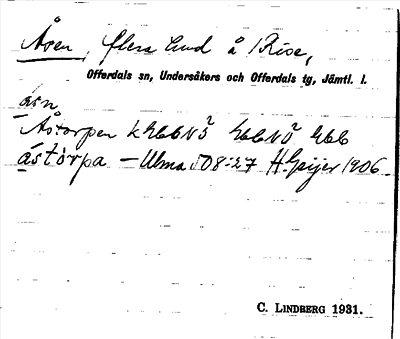 Åsen, flera lund å Rise,
Offerdals sn, Undersåkers och Offerdals tg, Jämtl. l.
åsn
Åstorpen
åstòrpa – Ulma 508:27 H. Geijer 1906.
C. LINDBERG 1931.